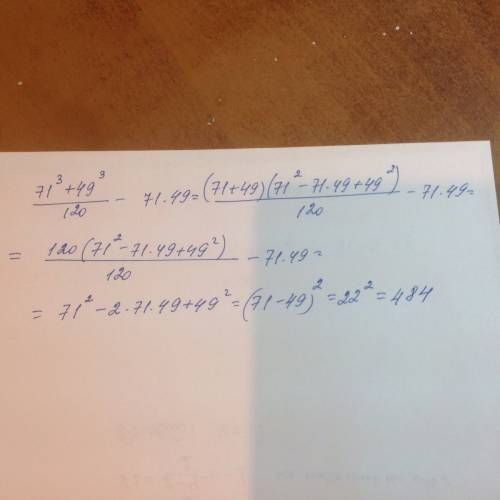 71³+49³/120 - 71.49=(71+49)(71²-71.49+49²)/120 -71.49=
= 120(71²-71.49+49²)/120 -71.49=
= 71²-2·71.49+49²=(71-49)²=22²=484